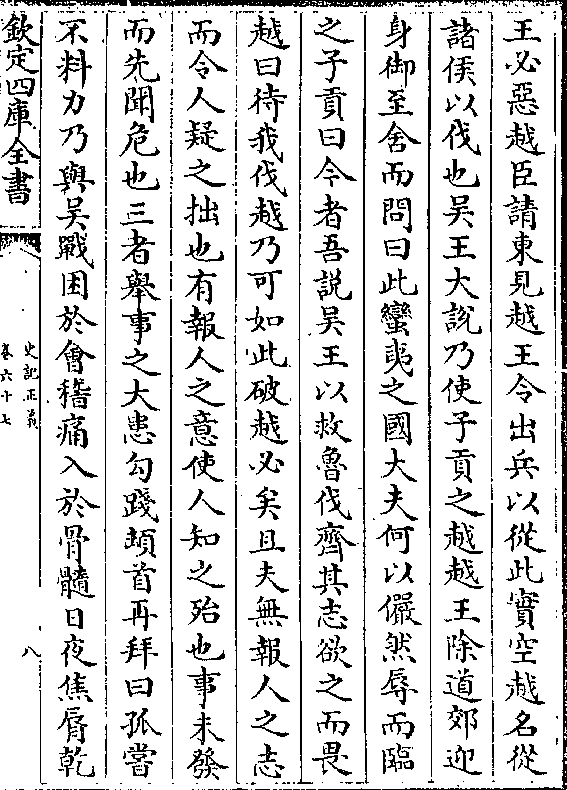 王必惡越臣請東見越王令出兵以從此實空越名從
諸侯以伐也吳王大說乃使子貢之越越王除道郊迎
身御至舍而問曰此蠻夷之國大夫何以儼然辱而臨
之子貢曰今者吾說吳王以救魯伐齊其志欲之而畏
越曰待我伐越乃可如此破越必矣且夫無報人之志
而令人疑之拙也有報人之意使人知之殆也事未發
而先聞危也三者舉事之大患勾踐頓首再拜曰孤嘗
不料力乃與吳戰困於會稽痛入於骨髓日夜焦脣乾
欽定四庫全書
史記正義
卷六十七
八